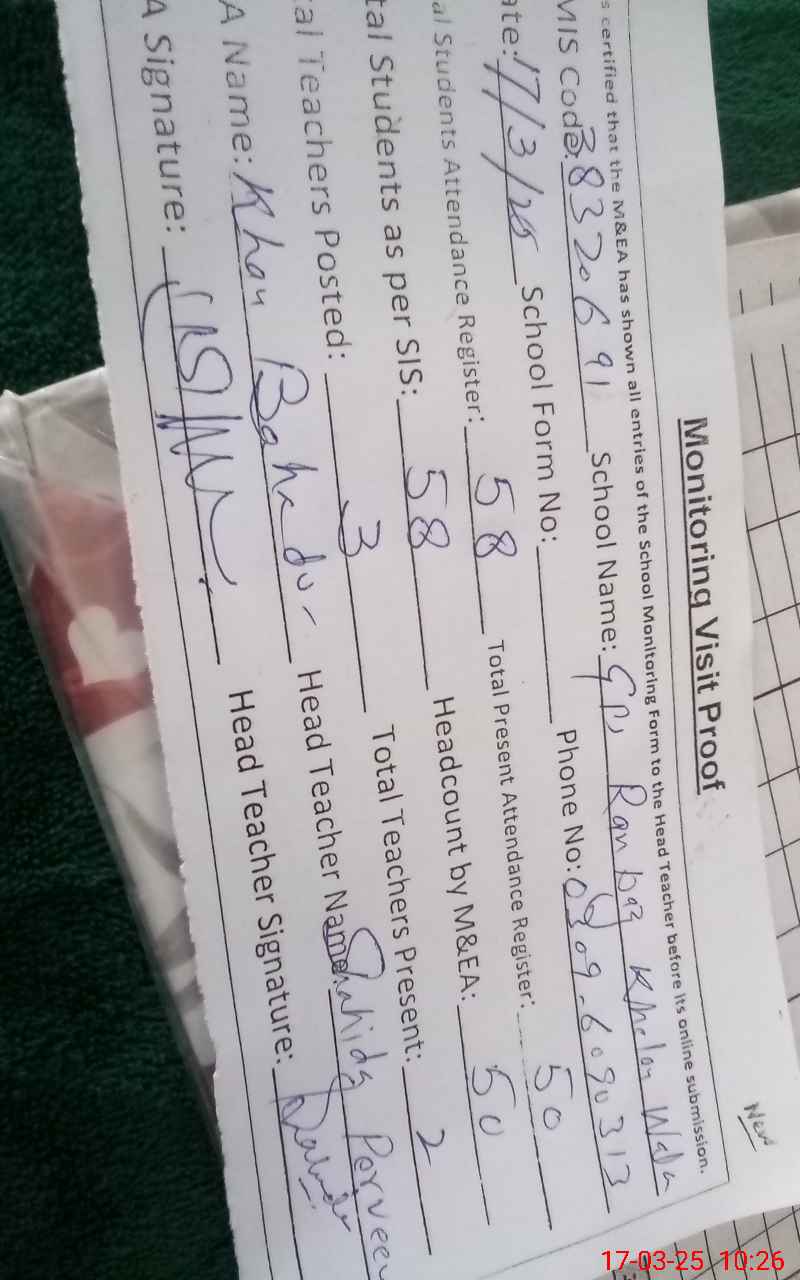 New
Monitoring Visit Proof
s certified that the M&EA has shown all entries of the School Monitoring Form to the Head Teacher before its online submission.
MIS Code: 38320691 School Name: GPS Ranbaz Khelan Wala
ate: 17/3/25 School Form No: Phone No: 0309-6090313
al Students Attendance Register: 58 Total Present Attendance Register: 50
tal Students as per SIS: 58 Headcount by M&EA: 50
tal Teachers Posted: 3 Total Teachers Present: 2
A Name: Khan Bahadur Head Teacher Name: Shahida Parveen
A Signature: Head Teacher Signature:
17-03-25 10:26